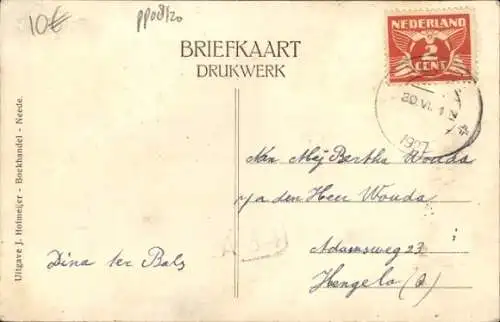 10€
pp08/20
NEDERLAND
2
CENT
BRIEFKAART
DRUKWERK
30.VI. 1
1927
Aan Mej Bertha Wouda
p/a den Heer Wouda
Adamsweg 23
Hengelo (O)
Dina ter Bals
Uitgave J. Hofmeijer - Boekhandel - Neede.